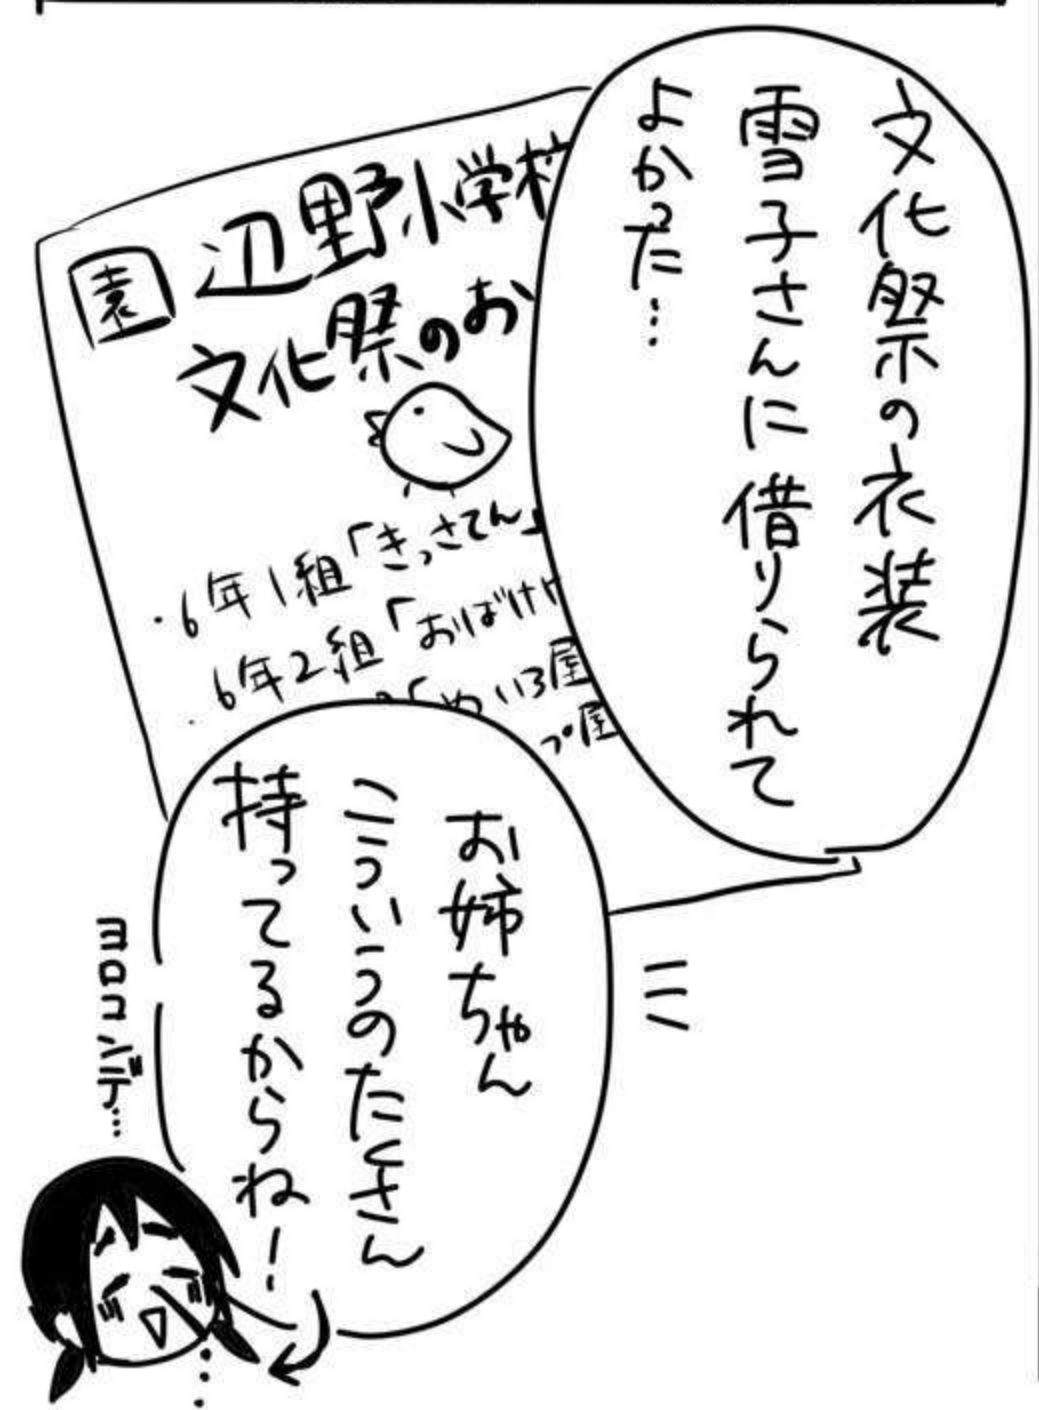 文化祭の衣装
雪子さんに借りられて
よかった…
園 辺野小学校
文化祭のお
・6年1組「きっさてん」
・6年2組「おばけ
「めいろ屋
プ屋
お姉ちゃん
こういうのたくさん
持ってるからね！
ヨロコンデ…